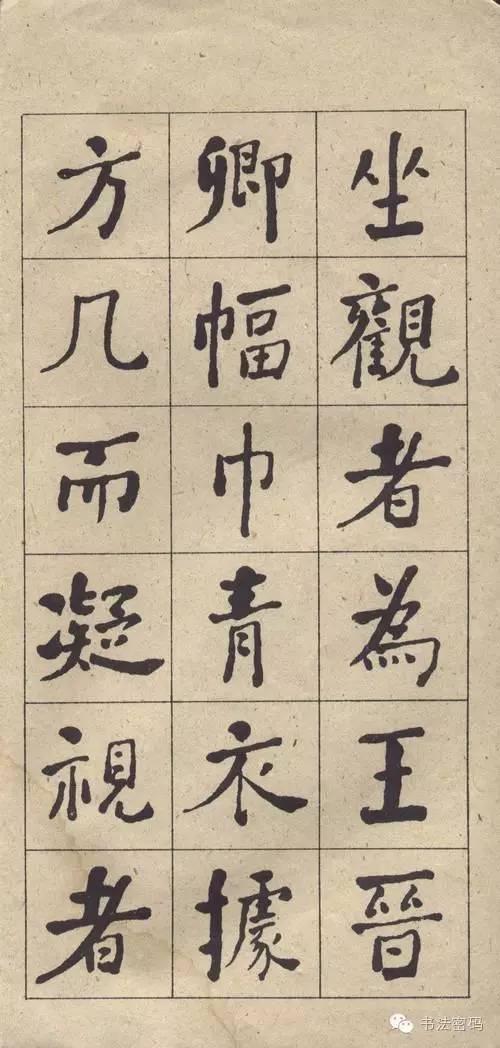 坐觀者為王晉
卿幅巾青衣據
方几而凝視者
书法密码